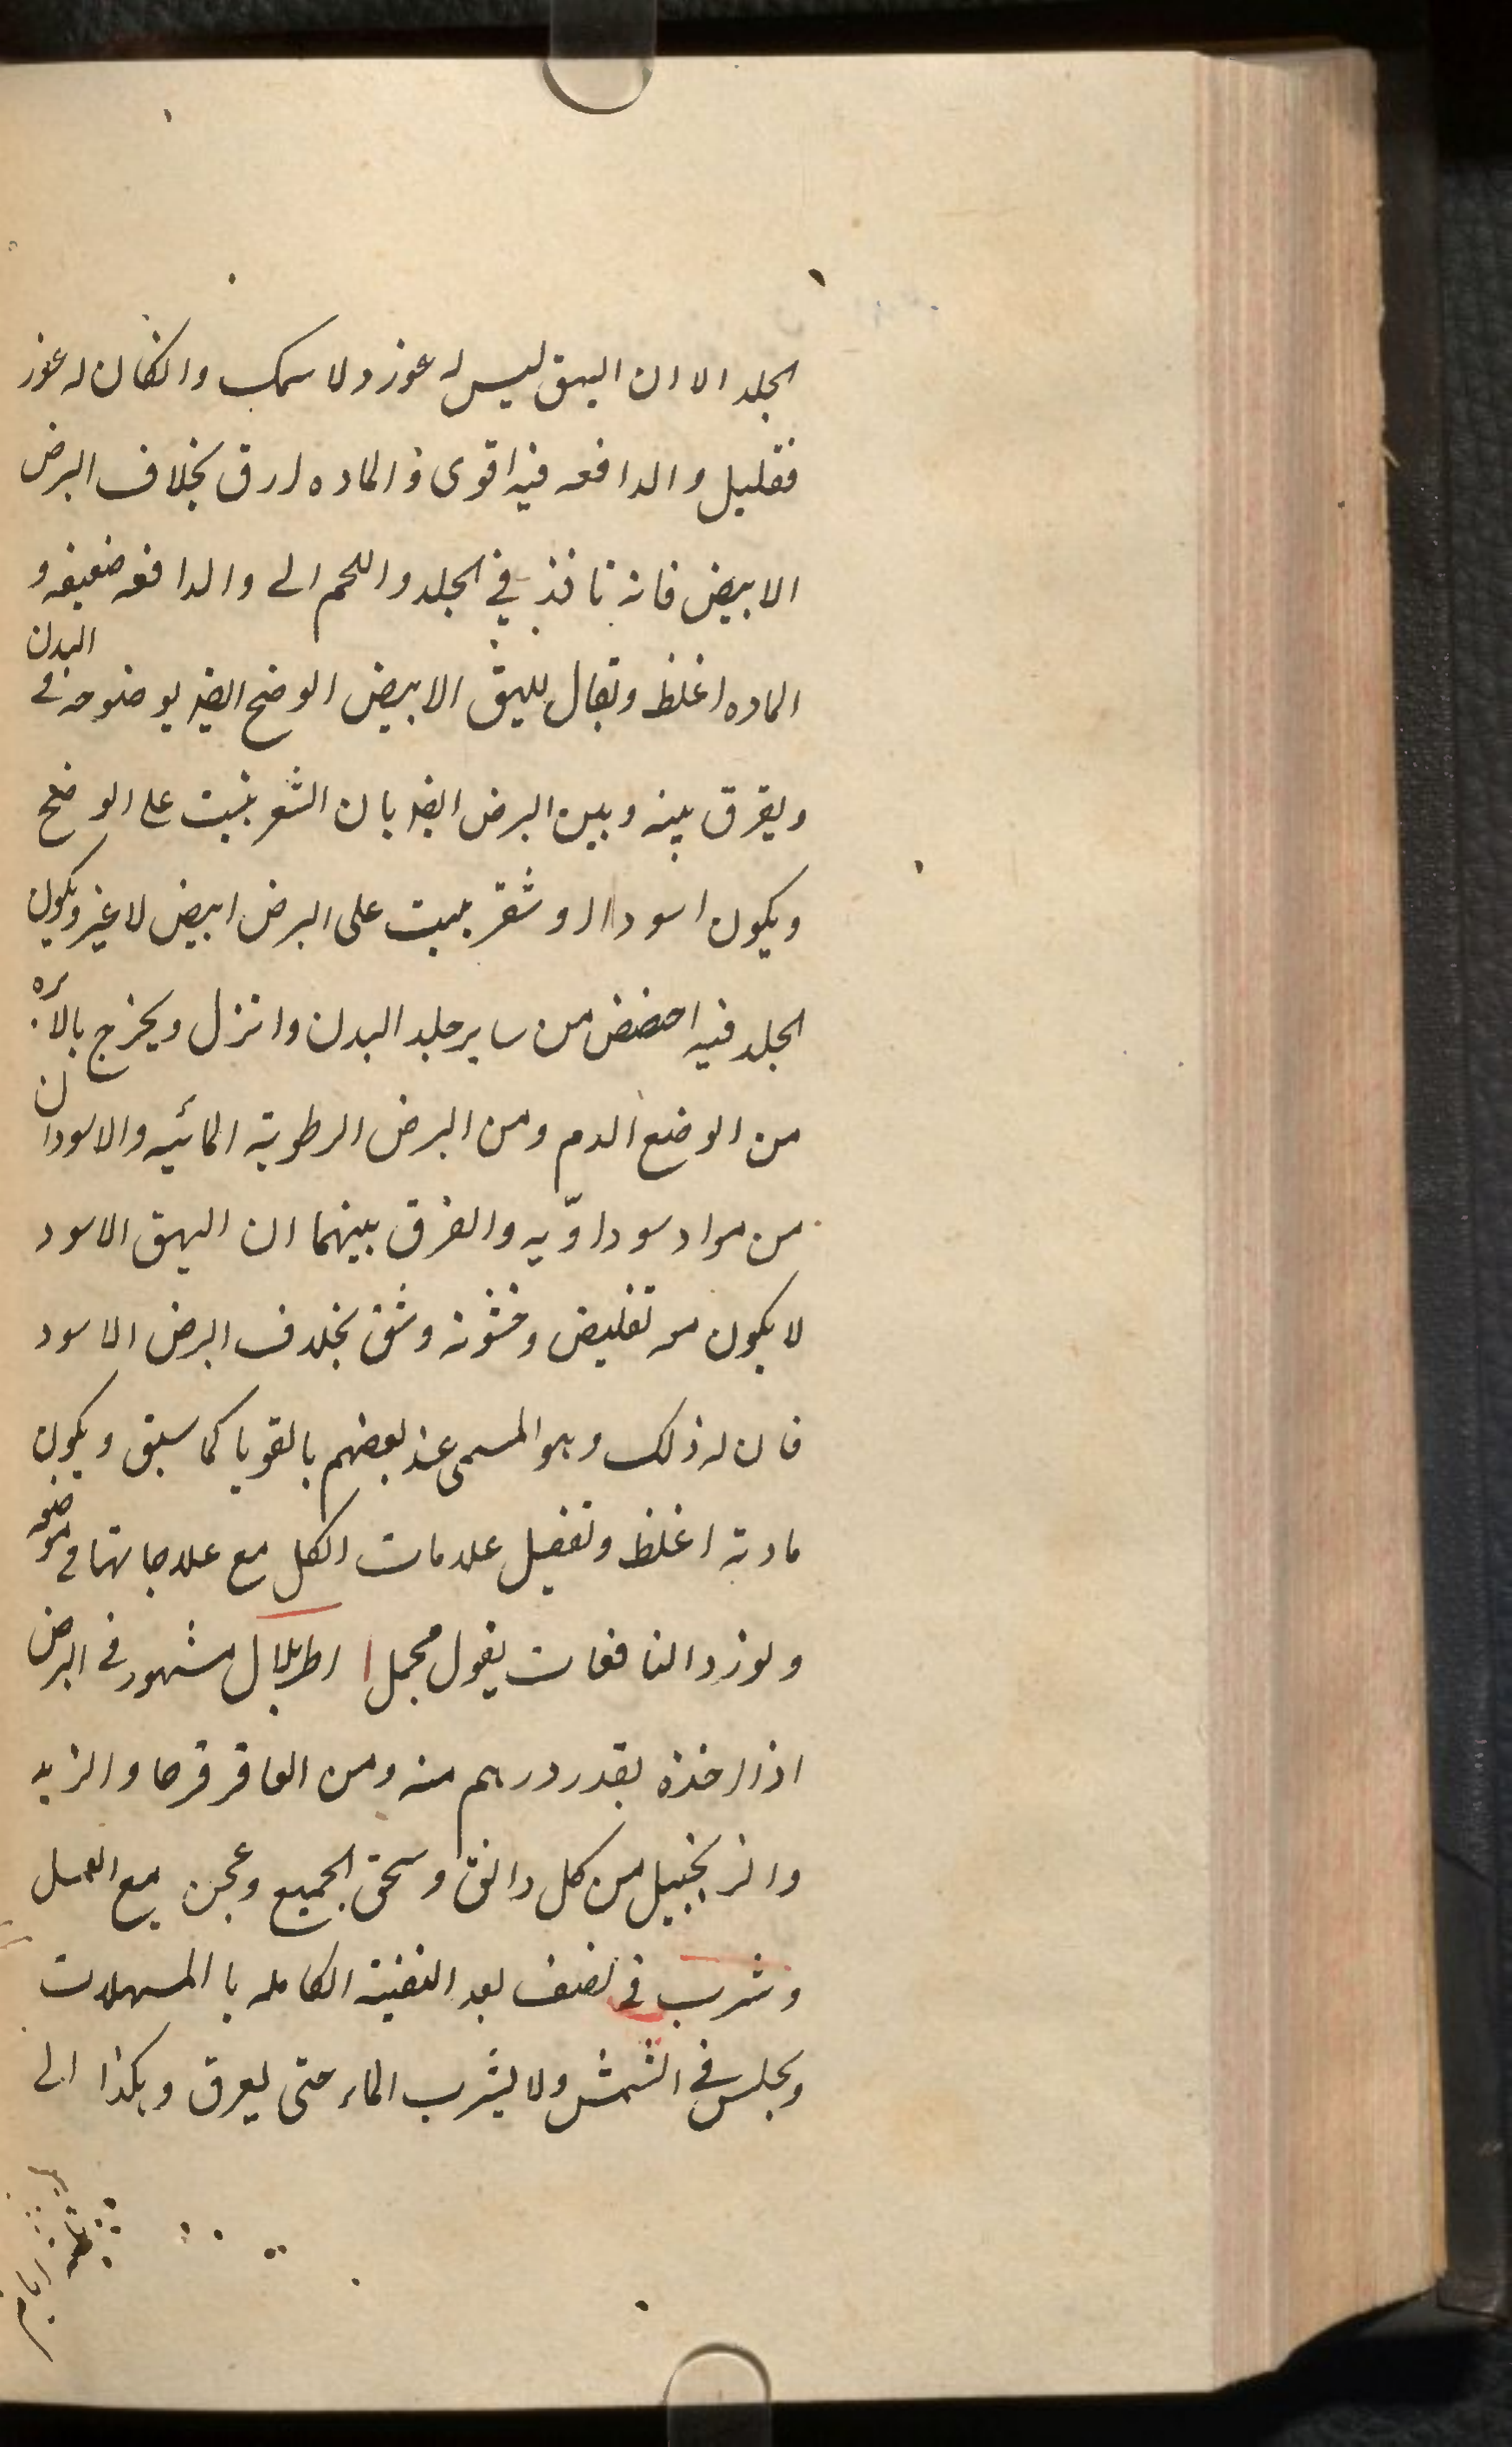 الجلد الا ان البهق ليس له غور ولا سمك وان كان له غور
فقليل والدافعه فيه اقوى والماده ارق بخلاف البرص
الابيض فانه نافذ في الجلد واللحم الى والدافعه ضعيفه و
الماده اغلظ ويقال للبهق الابيض الوضح ايضا لوضوحه في البدن
ويفرق بينه وبين البرص ايضا بان الشعر ينبت على الوضح
ويكون اسود او اشقر ينبت على البرص ابيض لا غير ويكون
الجلد فيه اخفض من ساير جلد البدن وانزل ويخرج بالابره
من الوضح الدم ومن البرص الرطوبة المائيه والاسودان
من مواد سوداويه والفرق بينهما ان البهق الاسود
لا يكون معه تفليس وخشونه وشق بخلاف البرص الاسود
فان له ذلك وهو المسمى عند بعضهم بالقوبا كما سبق ويكون
مادته اغلظ وتفصيل علامات الكل مع علاجاتها في موضعه
ولنورد النافعات بقول مجمل اطريلال مشهور في البرص
اذا اخذه بقدر درهم منه ومن العاقر قرحا والزبد
والزنجبيل من كل دانق وسحق الجميع وعجن مع العسل
وشرب في نصف بعد التنقية الكامله با المسهلات
ويجلس في الشمس ولا يشرب الماء حتى يعرق وهكذا الى
ثلثة ايام